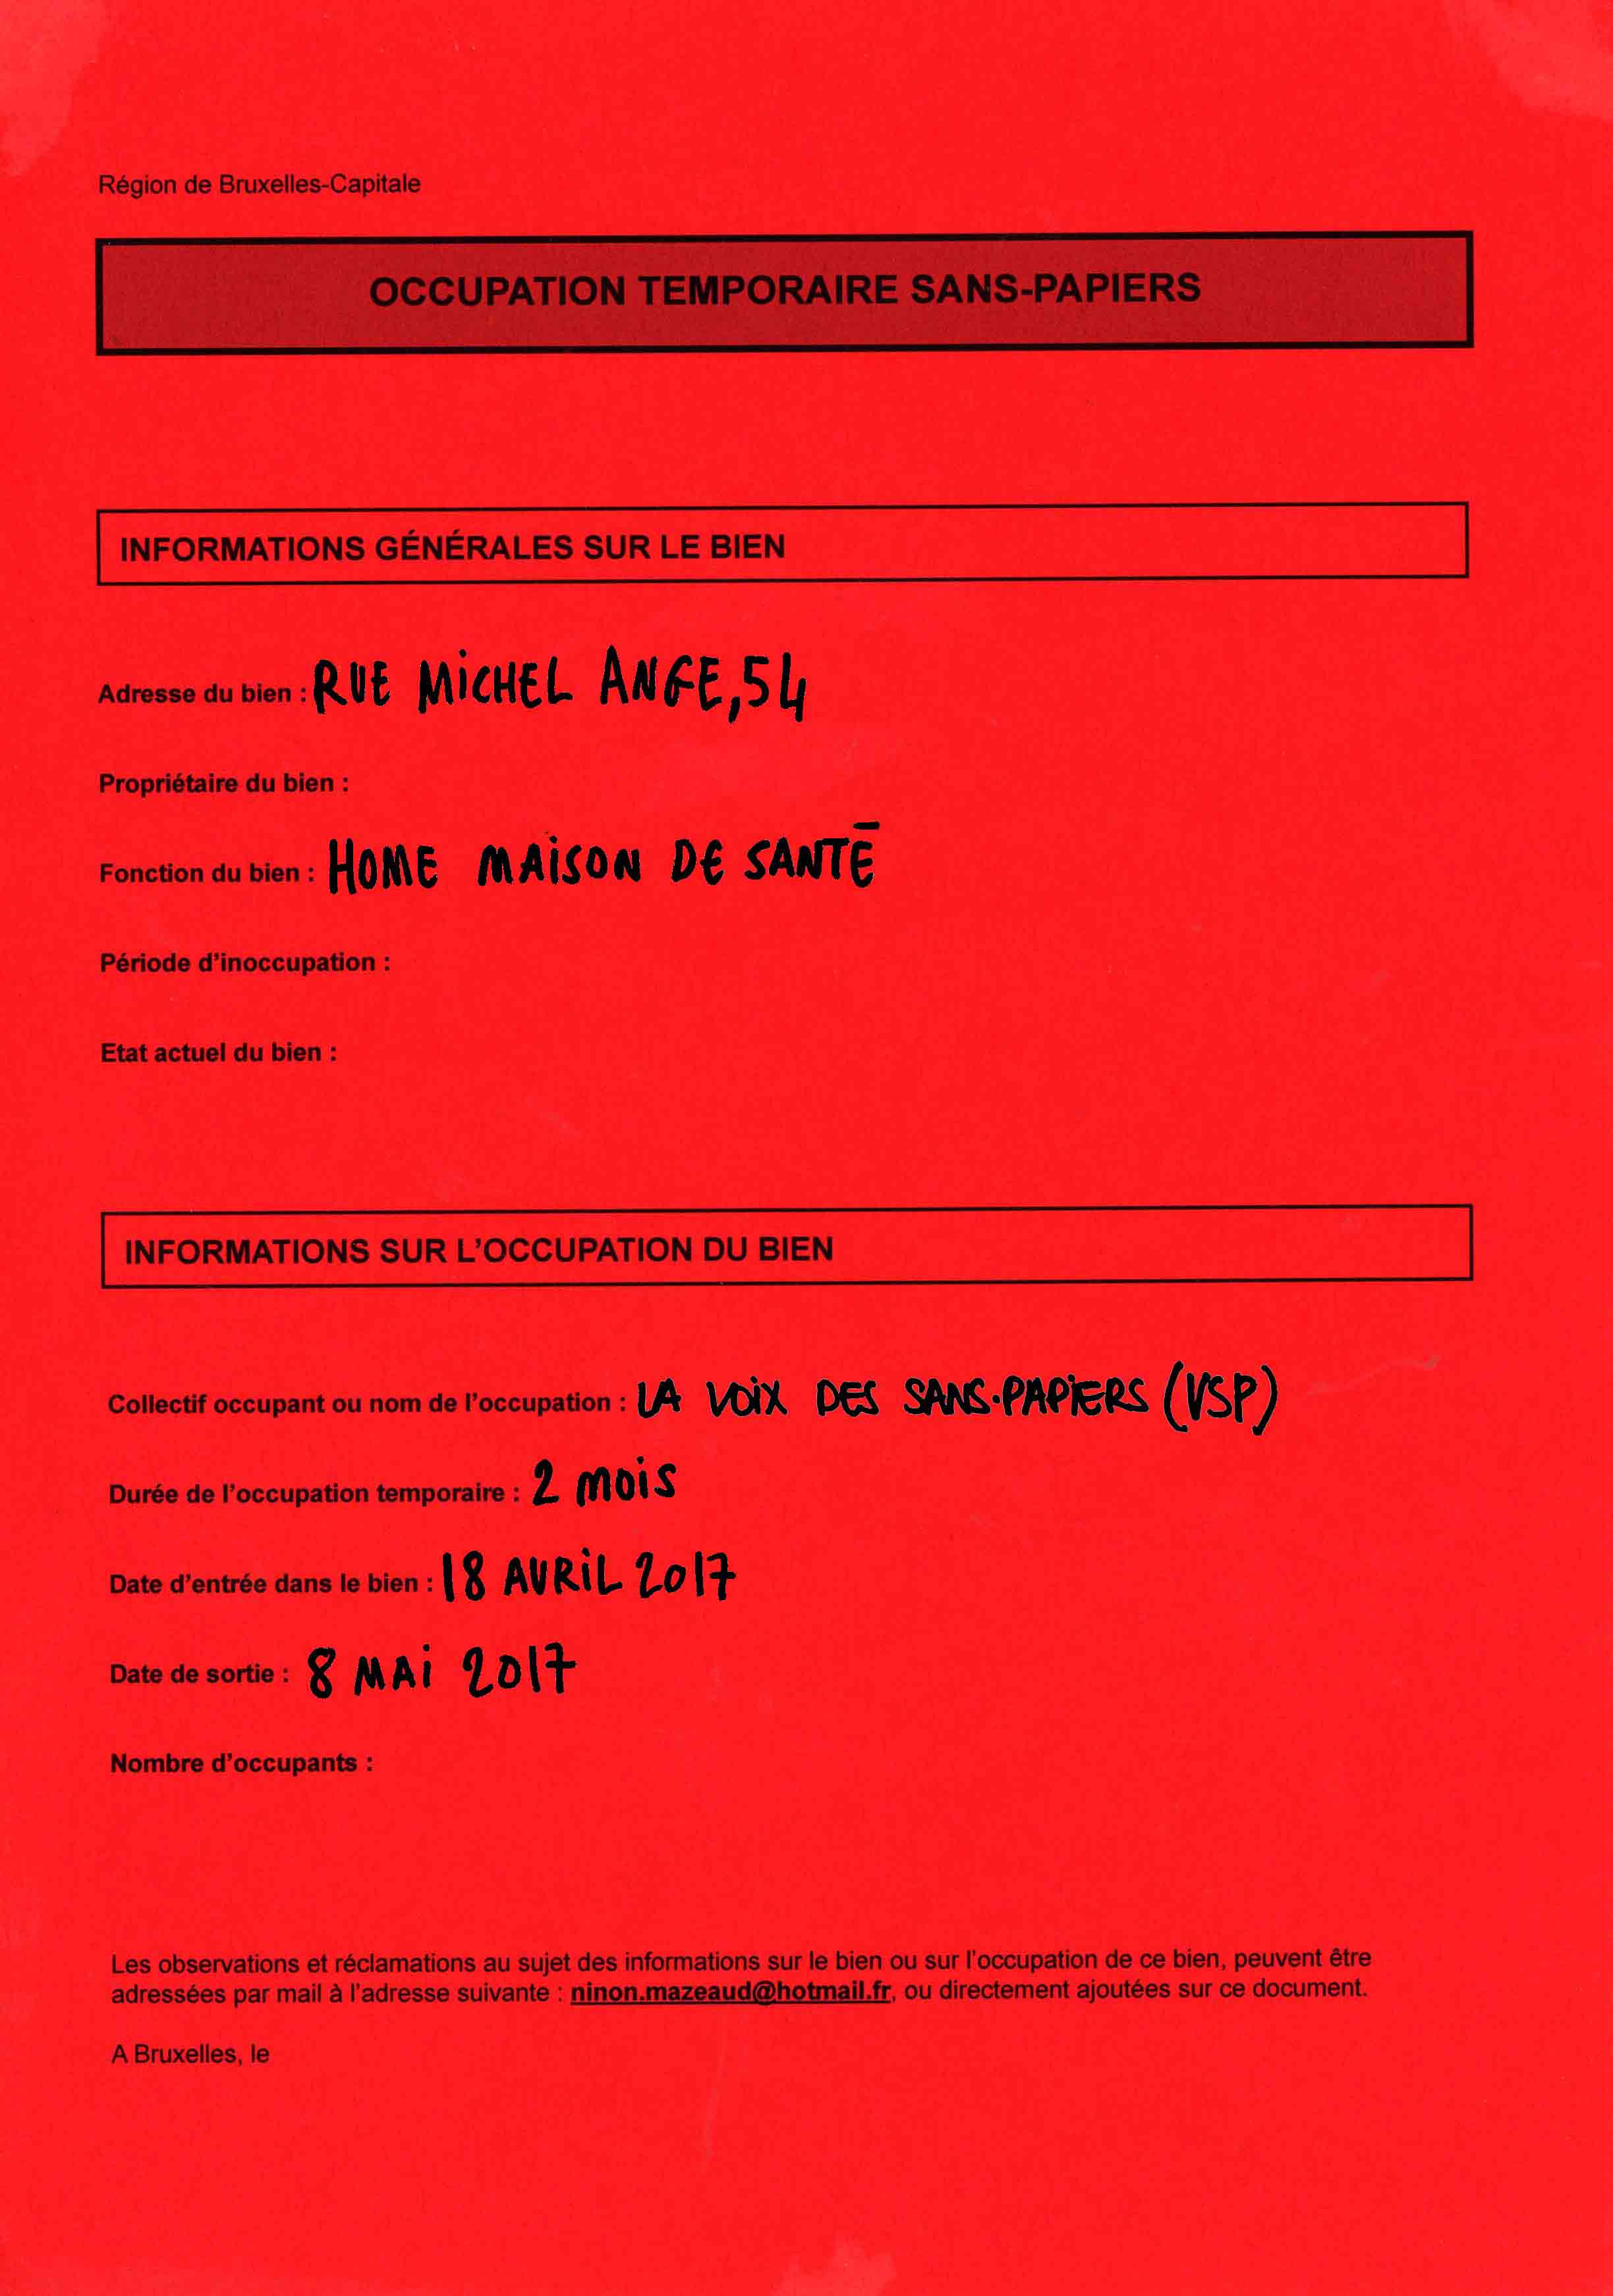 Région de Bruxelles-Capitale
OCCUPATION TEMPORAIRE SANS-PAPIERS
INFORMATIONS GÉNÉRALES SUR LE BIEN
Adresse du bien : RUE MiCHEL ANGE, 54
Propriétaire du bien :
Fonction du bien : HOME MAiSON DE SANTÉ
Période d'inoccupation :
Etat actuel du bien :
INFORMATIONS SUR L'OCCUPATION DU BIEN
Collectif occupant ou nom de l'occupation : LA VOiX DES SANS-PAPiERS (VSP)
Durée de l'occupation temporaire : 2 MOiS
Date d'entrée dans le bien : 18 AVRiL 2017
Date de sortie : 8 MAi 2017
Nombre d'occupants :
Les observations et réclamations au sujet des informations sur le bien ou sur l'occupation de ce bien, peuvent être
adressées par mail à l'adresse suivante : ninon.mazeaud@hotmail.fr, ou directement ajoutées sur ce document.
A Bruxelles, le